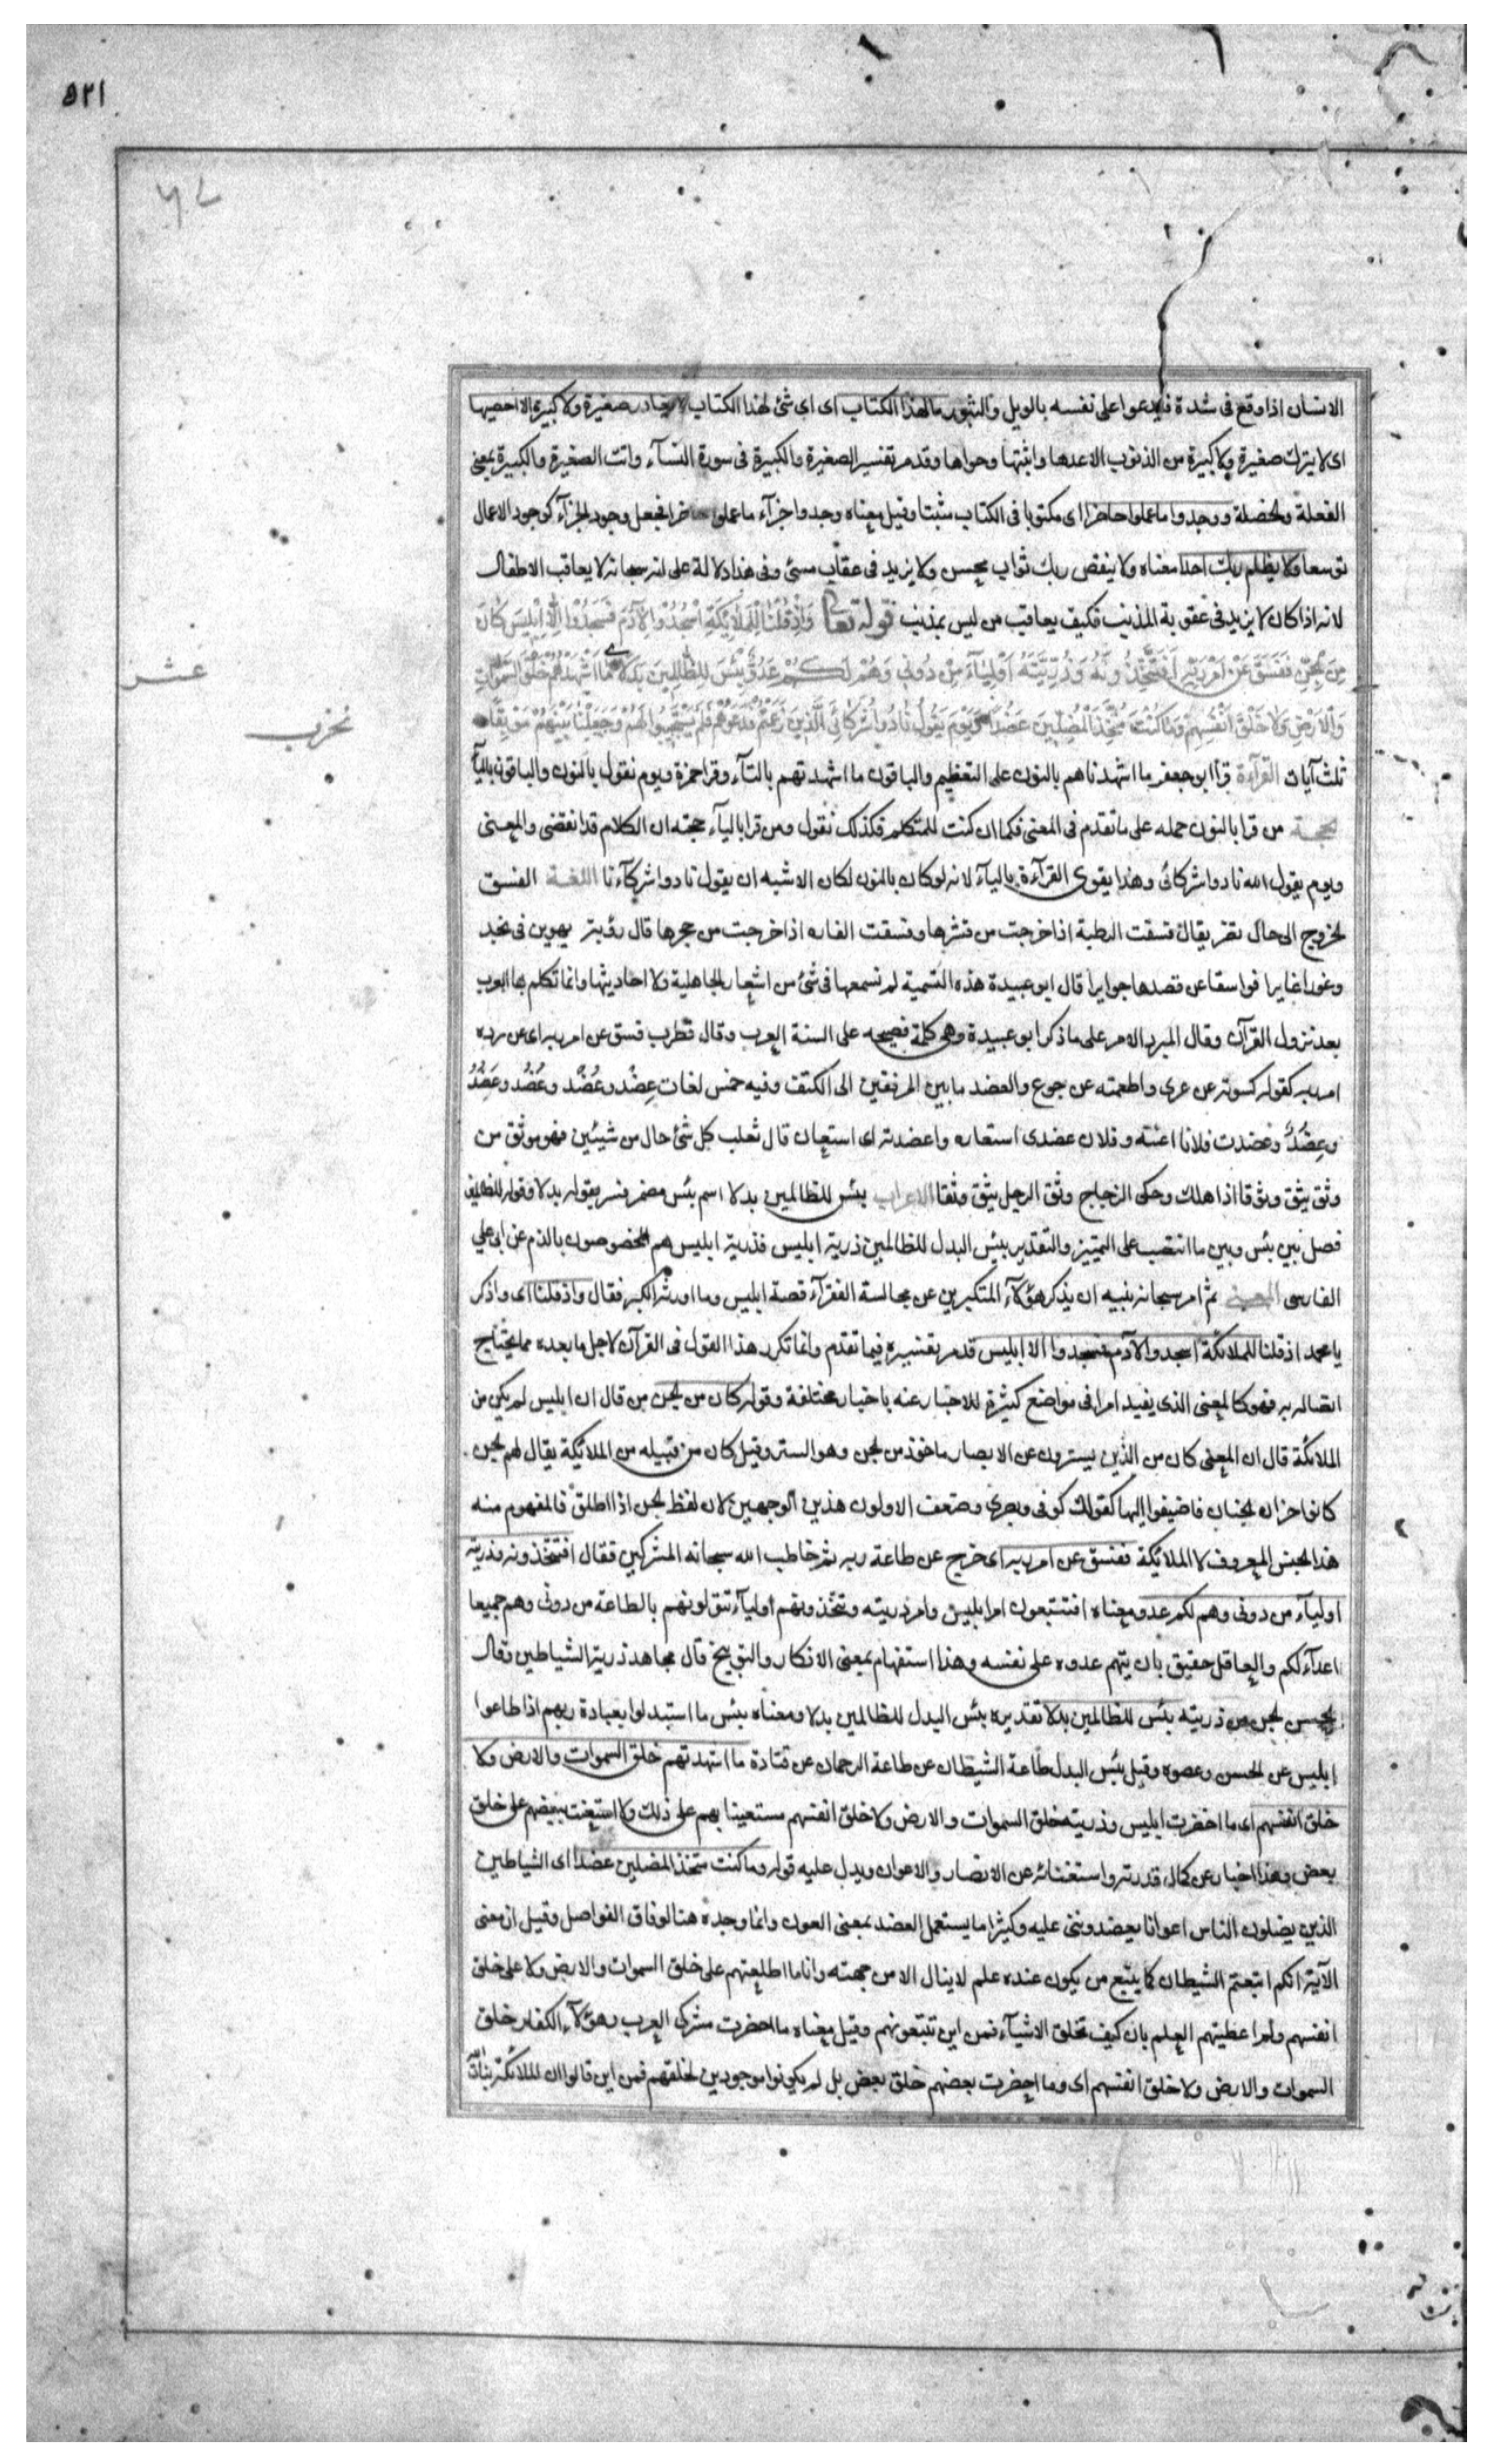 ٥٢١
الانسان اذا وقع فى شدة فيدعوا على نفسه بالويل والثبور مالهذا الكتاب اى اى شئ لهذا الكتاب لا يغادر صغيرة ولا كبيرة الا احصيها
اى لا يترك صغيرة ولا كبيرة من الذنوب الا عدها واثبتها وحواها وقدمر تفسير الصغيرة والكبيرة فى سورة النسآء وانت الصغيرة والكبيرة بمعنى
الفعلة والخصلة ووجدوا ما عملوا حاضرا اى مكتوبا فى الكتاب مثبتا وقيل معناه وجدوا جزآء ما عملوا حاضرا فجعل وجود الجزآء كوجود الاعمال
توسعا ولا يظلم ربك احدا معناه ولا ينقص ربك ثواب محسن ولا يزيد فى عقاب مسئ وفى هذا دلالة على انه سبحانه لا يعاقب الاطفال
لانه اذا كان لا يزيد فى عقوبة المذنب فكيف يعاقب من ليس بمذنب قوله تعالى وَاِذْ قُلْنَا لِلْمَلٰٓئِكَةِ اسْجُدُوْا لِاٰدَمَ فَسَجَدُوْٓا اِلَّآ اِبْلِيْسَ كَانَ
مِنَ الْجِنِّ فَفَسَقَ عَنْ اَمْرِ رَبِّهٖ اَفَتَتَّخِذُوْنَهُ وَذُرِّيَّتَهُ اَوْلِيَآءَ مِنْ دُوْنِي وَهُمْ لَكُمْ عَدُوٌّ بِئْسَ لِلظّٰلِمِيْنَ بَدَلًا مَا اَشْهَدْتُهُمْ خَلْقَ السَّمٰوٰتِ
وَالْاَرْضِ وَلَا خَلْقَ اَنْفُسِهِمْ وَمَا كُنْتُ مُتَّخِذَ الْمُضِلِّيْنَ عَضُدًا وَيَوْمَ يَقُوْلُ نَادُوْا شُرَكَائِيَ الَّذِيْنَ زَعَمْتُمْ فَدَعَوْهُمْ فَلَمْ يَسْتَجِيْبُوْا لَهُمْ وَجَعَلْنَا بَيْنَهُمْ مَوْبِقًا
عشر
حزب
ثلث آيات القرآءة قرأ ابو جعفر ما اشهدناهم بالنون على التعظيم والباقون ما اشهدتهم بالتآء وقرا حمزة ويوم نقول بالنون والباقون باليآء
الحجة من قرا بالنون حمله على ما تقدم فى المعنى فكما ان كنت للمتكلم فكذلك نقول ومن قرا باليآء حجته ان الكلام قد انقضى والمعنى
ويوم يقول الله نادوا شركائى وهذا يقوى القرآءة باليآء لانه لو كان بالنون لكان الاشبه ان يقول نادوا شركآءنا اللغة الفسق
الخروج الى حال تضر يقال فسقت الرطبة اذا خرجت من قشرها وفسقت الفاره اذا خرجت من حجرها قال رؤبة يهوين فى نجد
وغورا غايرا فواسقا عن قصدها جوايرا قال ابو عبيدة هذه التسمية لم نسمعها فى شئ من اشعار الجاهلية ولا احاديثها وانما تكلم بها العرب
بعد نزول القرآن وقال المبرد الامر على ما ذكر ابو عبيدة وهى كلمة فصيحه على السنة العرب وقال قطرب فسق عن امر ربه اى عن رده
امر ربه كقوله كسوته عن عرى واطعمته عن جوع والعضد ما بين المرفقين الى الكتف وفيه خمس لغات عضْد وعُضُد وعُضْد وعَضُدُ
وعِضَدُ وعضدت فلانا اعنته وفلان عضدى استعاره واعضدته اى استعان قال ثعلب كل شئ حال من شيئين فهو موثق من
وثق يثق وثوقا اذا هلك وحكى الزجاج وثق الرجل يثق وثقا الاعراب بئس للظالمين بدلا اسم بئس مضمر فسر بقوله بدلا وقوله للظالمين
فصل بين بئس وبين ما انتصب على التمييز والتقدير بئس البدل للظالمين ذرية ابليس فذرية ابليس هم المخصوصون بالذم عن ابى على
الفارسى المعنى ثم امر سبحانه نبيه ان يذكر هؤلآء المتكبرين عن مجالسة الفقرآء قصة ابليس وما اورثه الكبر فقال واذ قلنا اى واذكر
يا محمد اذ قلنا للملائكة اسجدوا لآدم فسجدوا الا ابليس قدمر تفسيره فيما تقدم وانما تكرر هذا القول فى القرآن لاجل ما بعده مما يحتاج
اتصاله به فهو كالمعنى الذى يفيد امرا فى مواضع كثيرة للاخبار عنه باخبار مختلفة وقوله كان من الجن من قال ان ابليس لم يكن من
الملائكة قال ان المعنى كان من الذين يسترون عن الابصار ماخوذ من الجن وهو الستر وقيل كان من قبيله من الملائيكة يقال لهم الجن
كانوا خزان الجنان فاضيفوا اليها كقولك كوفى وبصرى وضعف الاولون هذين الوجهين لان لفظ الجن اذا اطلق فالمفهوم منه
هذا الجنس المعروف لا الملائيكة ففسق عن امر ربه اى خرج عن طاعة ربه ثم خاطب الله سبحانه المشركين فقال افتتخذونه وذريته
اوليآء من دونى وهم لكم عدو معناه افتتبعون امر ابليس وامر ذريته وتتخذونهم اوليآء تتولونهم بالطاعة من دونى وهم جميعا
اعدآء لكم والعاقل حقيق بان يتهم عدوه على نفسه وهذا استفهام بمعنى الانكار والتوبيخ قال مجاهد ذريته الشياطين وقال
الحسن الجن من ذريته بئس للظالمين بدلا تقديره بئس البدل للظالمين بدلا ومعناه بئس ما استبدلوا بعبادة ربهم اذا طاعوا
ابليس عن الحسن وعصوه وقيل بئس البدل طاعة الشيطان عن طاعة الرحمان عن قتادة ما اشهدتهم خلق السموات والارض ولا
خلق انفسهم اى ما احضرت ابليس وذريته خلق السموات والارض ولا خلق انفسهم مستعينا بهم على ذلك ولا استعنت ببعضهم على خلق
بعض وهذا اخبار عن كمال قدرته واستغنائه عن الانصار والاعوان ويدل عليه قوله وما كنت متخذ المضلين عضدا اى الشياطين
الذين يضلون الناس اعوانا يعضدوننى عليه وكثيرا ما يستعمل العضد بمعنى العون وانما وحده هنا لوفاق الفواصل وقيل ان معنى
الآية انكم اتبعتم الشيطان كما يتبع من يكون عنده علم لا ينال الا من جهته وانا ما اطلعتهم على خلق السموات والارض ولا على خلق
انفسهم ولم اعطيتهم العلم بان كيف تخلق الاشيآء فمن اين تتبعونهم وقيل معناه ما احضرت مشركى العرب وهؤلآء الكفار خلق
السموات والارض ولا خلق انفسهم اى وما احضرت بعضهم خلق بعض بل لم يكونوا موجودين لخلقهم فمن اين قالوا ان الملائكة بنات